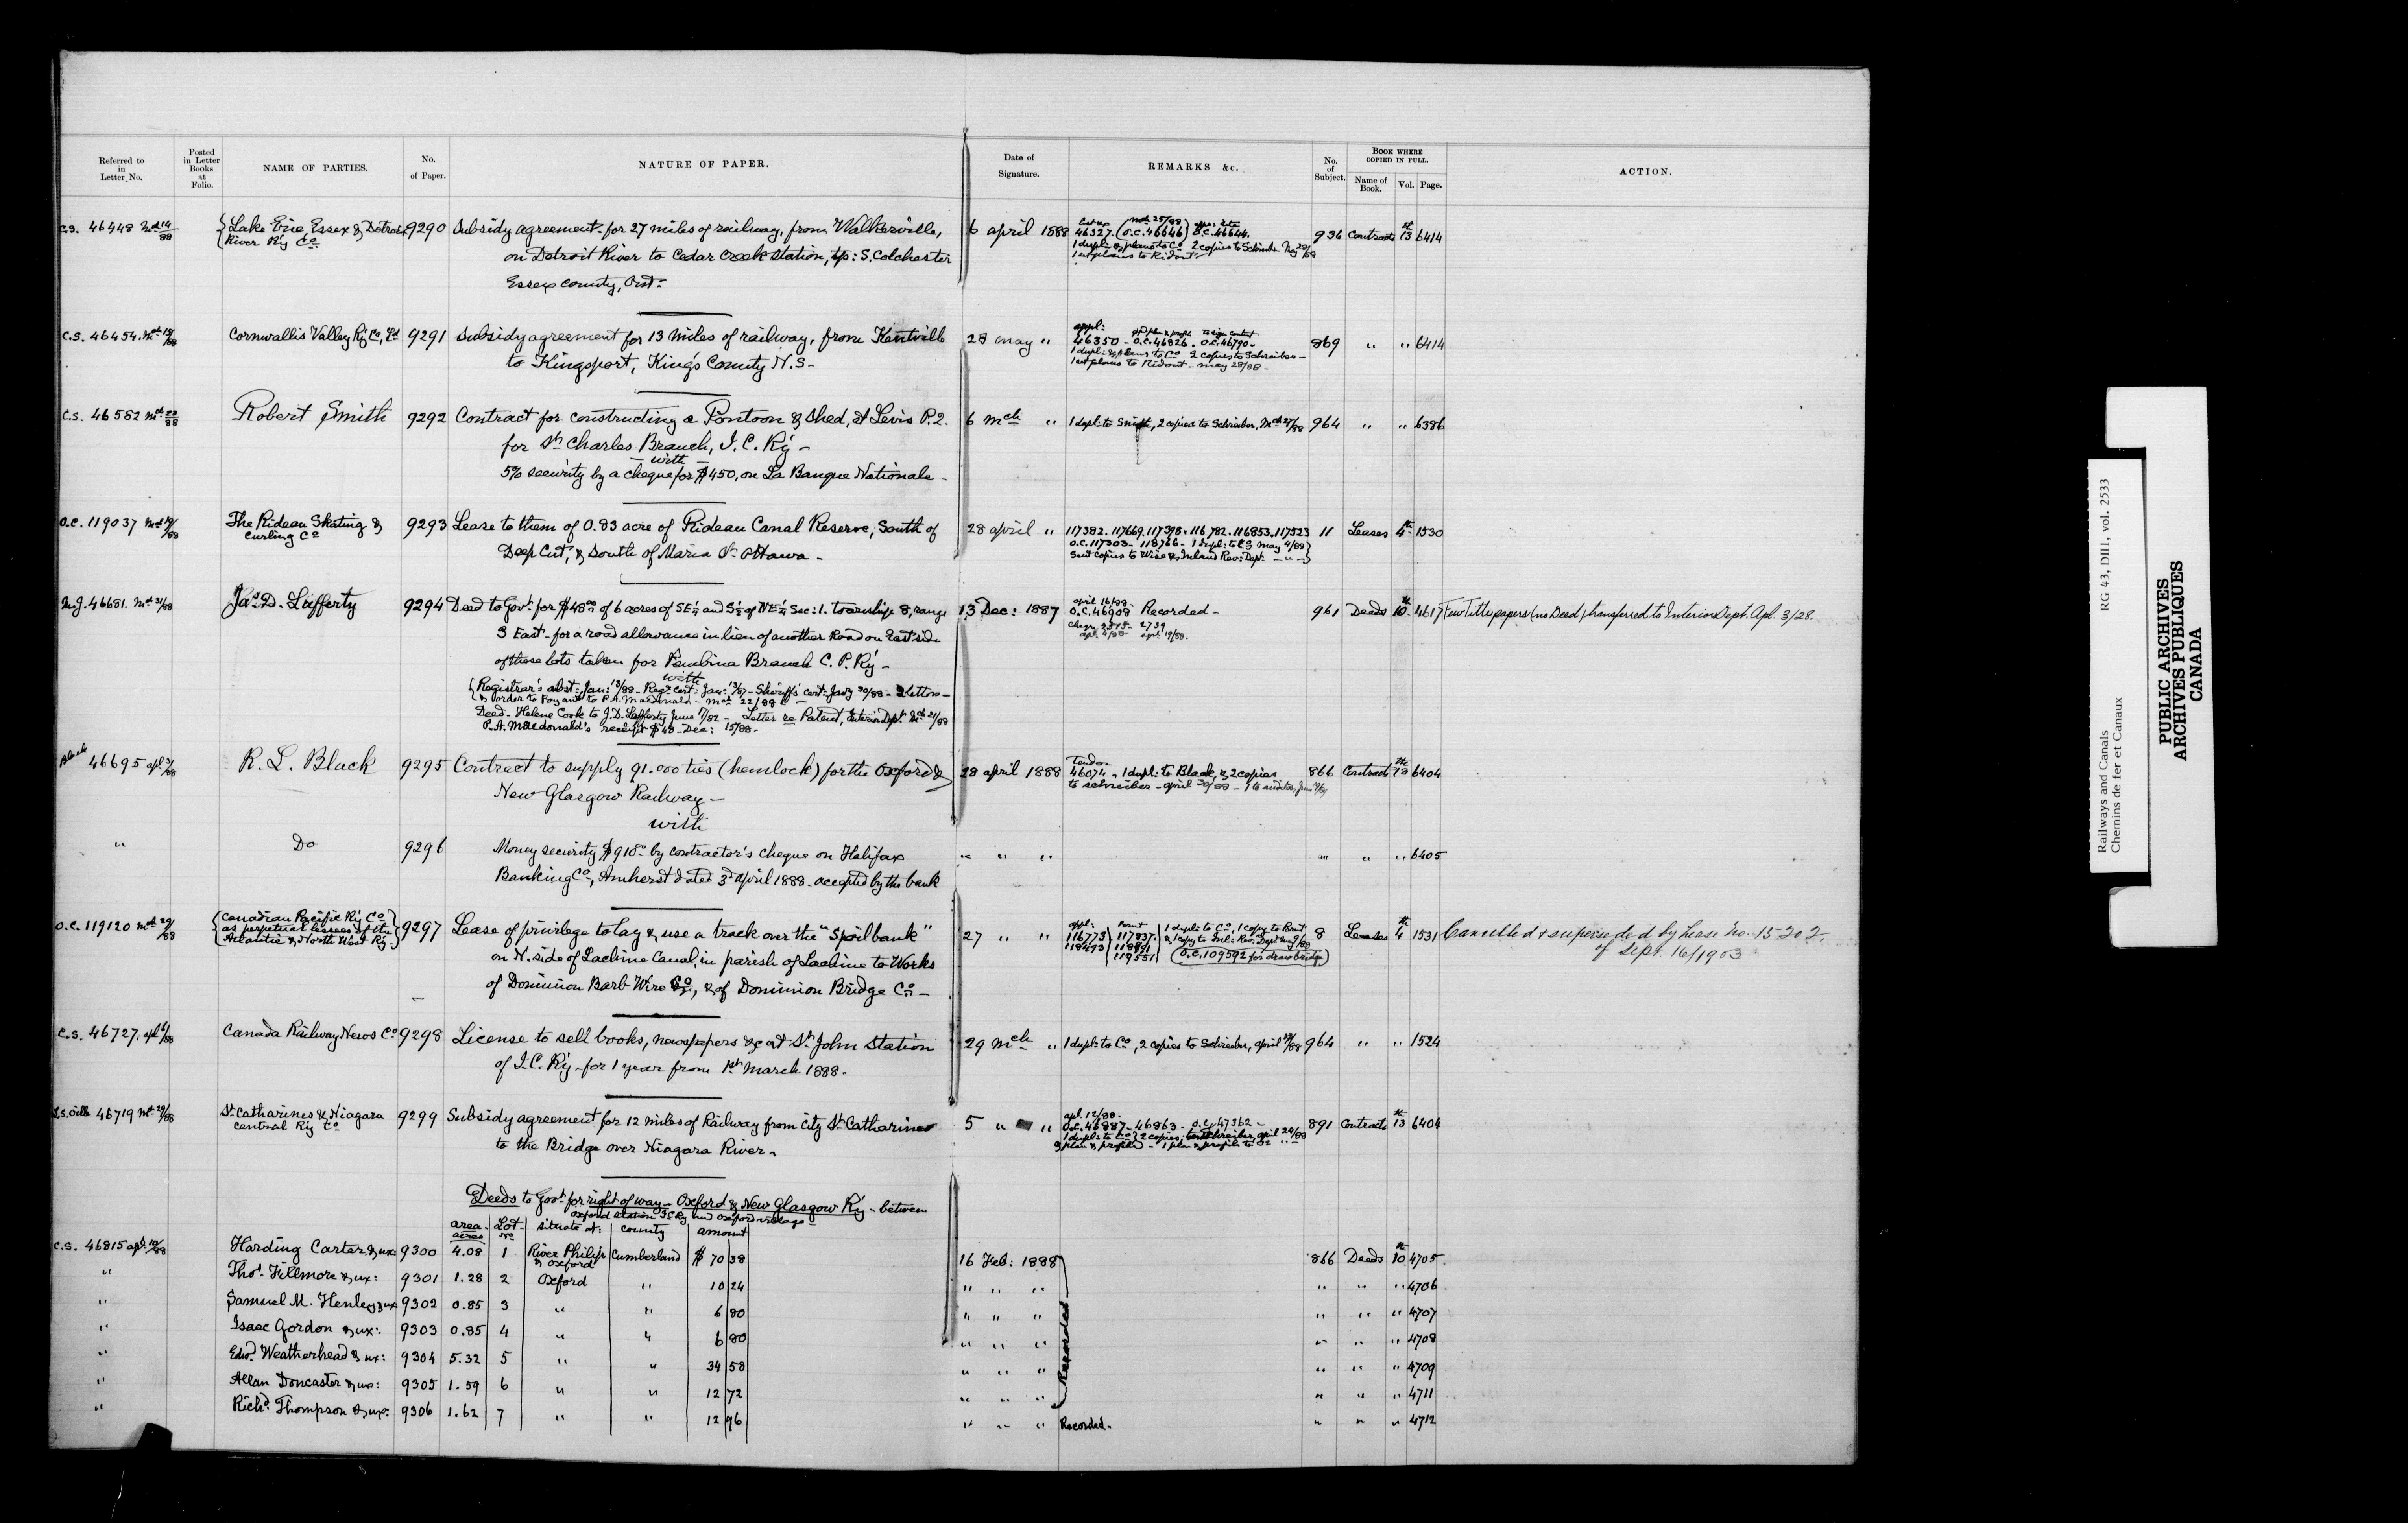 Referred to in Letter No.
Posted in Letter Books at Folio.
NAME OF PARTIES.
No. of Paper.
NATURE OF PAPER.
Date of Signature.
REMARKS &c.
No. of Subject.
BOOK WHERE COPIED IN FULL.
Name of Book.
Vol.
Page.
ACTION.
C.S. 46448 Mch 14/88 Lake Erie, Essex & Detroit 9290 Subsidy agreement for 27 miles of railway, from Walkerville, 6 april 1888 46327. (O.C. 46646) O.C. 46644. 936 Contracts 13th 6414
River Ry Co on Detroit River to Cedar Creek station, tp: S. Colchester 1 dupl: & plans to Co 2 copies to Schreiber
Essex county, Ont. 1 set plans to Ridout
C.S. 46454. Cornwallis Valley Ry Co, Ld 9291 Subsidy agreement for 13 miles of railway, from Kentville 28 may " appl: 46350 - O.C. 46826. O.C. 46790 - 869 " " 6414
to Kingsport, King's County N.S- 1 dupl: & plans to Co 2 copies to Schreiber -
1 set plans to Ridout - may 28/88 -
C.S. 46582 Mch Robert Smith 9292 Contract for constructing a Pontoon & Shed, at Levis P.Q. 6 Mch " 1 dupl: to Smith, 2 copies to Schreiber, Mch 27/88 964 " " 6386
for St Charles Branch, I. C. Ry -
with
5% security by a cheque for $450, on La Banque Nationale -
O.C. 119037 Mch The Rideau Skating & 9293 Lease to them of 0.83 acre of Rideau Canal Reserve, South of 28 april " 117382. 117669. 117398. 116782. 116853. 117523 11 Leases 4th 1530
Curling Co Deep Cut, & South of Maria St Ottawa - O.C. 117303 - 118766 - 1 dupl: to C.S. May 4/88
Sent copies to Wise & Inland Rev: Dept.
46681. Mch 31/88 Jas D. Lafferty 9294 Deed to Govt for $48.00 of 6 acres of SE¼ and S½ of NE¼ Sec: 1. township 8, range 13 Dec: 1887 april 16/88 961 Deeds 10th 4617 Few Title papers (no Deed) transferred to Interior Dept. Apl. 3/28.
3 East - for a road allowance in lieu of another Road on East side O.C. 46908 Recorded -
of those lots taken for Pembina Branch C. P. Ry -
with
Registrar's abst: Jan: 13/88 - Regr cert: Jan: 13/87 - Sheriff's cert: Jany 30/88 - 2 letters -
& order to Pay amt to P. A. Macdonald - Mch 22/88
Deed - Helene Cook to J. D. Lafferty June 7/82 - Letter re Patent, Interior Dept. Mch 21/88
P. A. Macdonald's receipt $48 - Dec: 15/88 -
Black 46695 R. L. Black 9295 Contract to supply 91.000 ties (hemlock) for the Oxford & 28 april 1888 Tender 866 Contract 13th 6404
New Glasgow Railway - 46074 - 1 dupl: to Black, & 2 copies
to schreiber - april 30/88 -
with
" Do 9296 Money security $910.00 by contractor's cheque on Halifax " " " " " " 6405
Banking Co, Amherst dated 3d April 1888 - accepted by the bank
O.C. 119120 Mch 29/88 Canadian Pacific Ry Co 9297 Lease of privilege to lay & use a track over the "Spoil bank" 27 " " appl: 8 Leases 4th 1531 Cancelled & superseded by Lease No. 15202.
as perpetual lessees of the on N. side of Lachine Canal, in parish of Lachine to Works 116773 117837. 1 dupl: to Co, 1 copy to of Sept. 16/1903
Atlantic & North West Ry. of Dominion Barb Wire Co, & of Dominion Bridge Co - 118473 119551 (O.C. 109592 for drawbridge)
C.S. 46727. apl 6/88 Canada Railway News Co 9298 License to sell books, newspapers &c at St John Station 29 Mch " 1 dupl: to Co, 2 copies to Schreiber, april 964 " " 1524
of I.C. Ry - for 1 year from 1st March 1888 -
46719 Mch 29/88 St Catharines & Niagara 9299 Subsidy agreement for 12 miles of Railway from City St Catharines 5 " " apl. 12/88 - 891 Contracts 13th 6404
Central Ry Co to the Bridge over Niagara River - O.C. 46887 - 46863 - O.C. 47362 -
1 dupl: to Co & 2 copies, to Schreiber, april 24/88
Deeds to Govt for right of way - Oxford & New Glasgow Ry - between
Oxford Station I.C. Ry and Oxford village -
area acres Lot No situate at: county amount
C.S. 46815 Harding Carter & ux 9300 4.08 1 River Philip & Oxford Cumberland $ 70 38 16 Feb: 1888 866 Deeds 10th 4705
" Thos. Fillmore & ux: 9301 1.28 2 Oxford " 10 24 " " " " " " 4706
" Samuel M. Henley & ux 9302 0.85 3 " " 6 80 " " " Recorded " " " 4707
" Isaac Gordon & ux: 9303 0.85 4 " " 6 80 " " " " " " 4708
" Edwd Weatherhead & ux: 9304 5.32 5 " " 34 58 " " " " " " 4709
" Allan Doncaster & ux: 9305 1.59 6 " " 12 72 " " " " " " 4711
" Richd Thompson & ux: 9306 1.62 7 " " 12 96 " " " Recorded - " " " 4712
Railways and Canals RG 43, DIII, vol. 2533
Chemins de fer et Canaux
PUBLIC ARCHIVES
ARCHIVES PUBLIQUES
CANADA